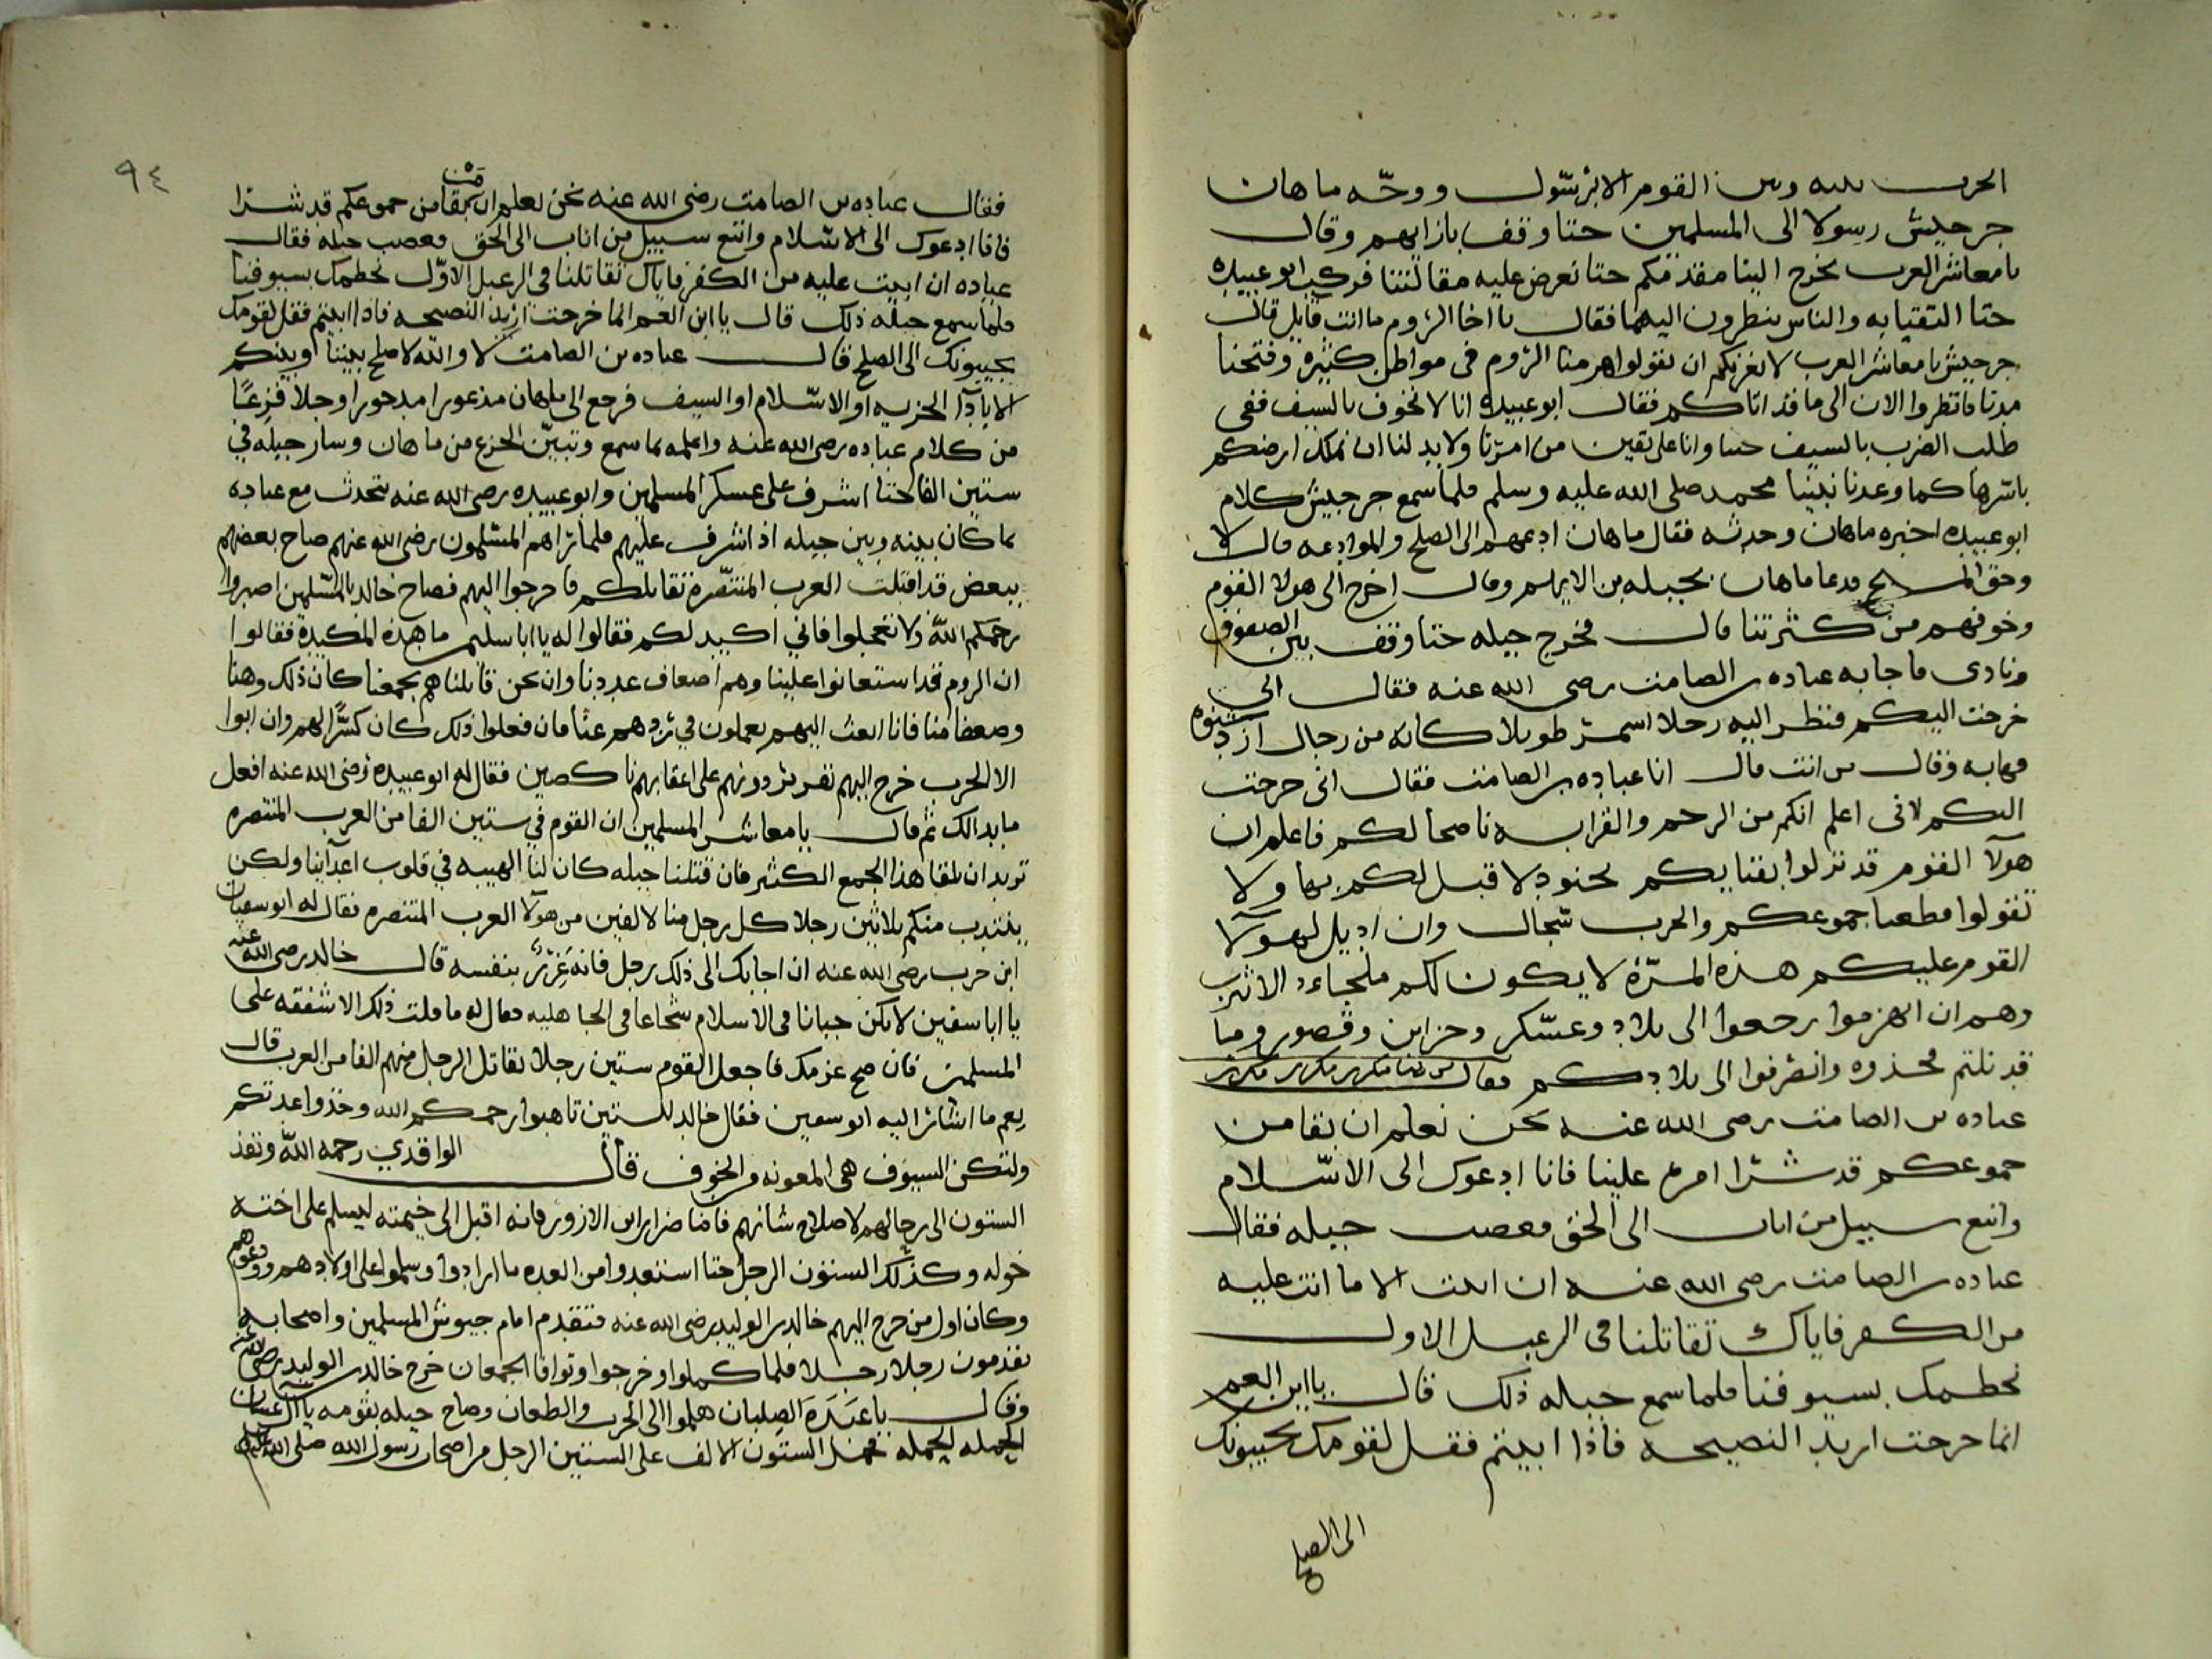 الحرب بينه وبين القوم الا برسول ووجه ماهان
جرجيش رسولا الى المسلمين حتا وقف بازايهم وقال
يا معاشر العرب يخرج الينا مقدمكم حتا نعرض عليه مقالتنا فركب ابو عبيده
حتا التقيا به والناس ينظرون اليهما فقال يا اخا الروم ما انت قايل قال
جرجيش يا معاشر العرب لا يغرنكم ان تقولوا هزمنا الروم فى مواطن كثيره وفتحنا
مدنا فانظروا الان الى ما قد اتاكم فقال ابو عبيده انا لا نخوف بالسيف ففى
طلب الضرب بالسيف حسا وانا على يقين من امرنا ولا بد لنا ان نملك ارضكم
باسرها كما وعدنا نبينا محمد صلى الله عليه وسلم فلما سمع جرجيش كلام
ابو عبيده اخبره ماهان وحدثه فقال ماهان ادعهم الى الصلح والموادعه قال لا
وحق المسيح فدعا ماهان بجبله بن الايهم وقال اخرج الى هولا القوم
وخوفهم من كثرتنا قال فخرج جبله حتا وقف بين الصفوف
ونادى فاجابه عباده بن الصامت رضى الله عنه فقال الى
خرجت اليكم فنظر اليه رجلا اسمر طويلا كانه من رجال ازد شنوه
فهابه وقال من انت قال انا عباده بن الصامت فقال انى خرجت
اليكم لانى اعلم انكم من الرحم والقرابه ناصحا لكم فاعلم ان
هولآ القوم قد نزلوا بفنايكم بجنود لا قبل لكم بها ولا
تقولوا قطعنا جموعكم والحرب سجال وان اديل لهولآ
القوم عليكم هذه المرة لا يكون لكم ملجاء الا يثرب
وهم ان انهزموا رجعوا الى بلاد وعسكر وخزاين وقصور وما
قد نلتم فخذوه وانصرفوا الى بلادكم فقال من هنا مكرر مكرر مكرر
عباده بن الصامت رضى الله عنه نحن نعلم ان بقا من
جموعكم قد شرا امره علينا فانا ادعوك الى الاسلام
واتبع سبيل من اناب الى الحق فغضب جبله فقال
عباده بن الصامت رضى الله عنه ان ابيت الا ما انت عليه
من الكفر فاياك تقاتلنا فى الرعيل الاول
نحطمك بسيوفنا فلما سمع جبله ذلك قال يا ابن العم
انما خرجت اريد النصيحه فاذا ابيتم فقل لقومك يجيبونك
الى الصلح
٩٤
فقال عباده بن الصامت رضى الله عنه نحن نعلم ان من بقا من جموعكم قد شرا
فانا ادعوك الى الاسلام واتبع سبيل من اناب الى الحق فغضب جبله فقال
عباده ان ابيت عليه من الكفر فاياك تقاتلنا فى الرعيل الاول نحطمك بسيوفنا
فلما سمع جبله ذلك قال يا ابن العم انما خرجت اريد النصيحه فاذا ابيتم فقل لقومك
يجيبونك الى الصلح قال عباده بن الصامت لا والله لا صلح بيننا وبينكم
الا بادآ الجزيه او الاسلام او السيف فرجع الى ماهان مذعورا مدحورا وجلا فزعا
من كلام عباده رضى الله عنه واعلمه بما سمع وتبين الجزع من ماهان وسار جبله في
ستين الفا حتا اشرف على عسكر المسلمين وابو عبيده رضى الله عنه يتحدث مع عباده
بما كان بينه وبين جبله اذ اشرف عليهم فلما راهم المسلمون رضى الله عنهم صاح بعضهم
ببعض قد اقبلت العرب المنتصرة تقاتلكم فاخرجوا اليهم فصاح خالد بالمسلمين اصبروا
رحمكم الله ولا تعجلوا فاني اكيد لكم فقالوا له يا ابا سليم ما هذه المكيدة فقالوا
ان الروم قد استعانوا علينا وهم اضعاف عددنا وان نحن قاتلناهم بجمعنا كان ذلك وهنا
وضعفا منا فانا ابعث اليهم يعملون في ردهم عنا فان فعلوا ذلك كان كسرا لهم وان ابوا
الا الحرب خرج اليهم نفر يردونهم على اعقابهم ناكصين فقال له ابو عبيده رضى الله عنه افعل
ما بدالك ثم قال يا معاشر المسلمين ان القوم في ستين الفا من العرب المنتصره
تريد ان نلقا هذا الجمع الكثير فان قتلنا جبله كان لنا الهيبه في قلوب اعدآينا ولكن
ينتدب منكم ثلاثين رجلا كل رجل منا لالفين من هولآ العرب المتنصره فقال له ابو سفيان
ابن حرب رضى الله عنه ان اجابك الى ذلك رجل فانه غرر بنفسه قال خالد رضى الله عنه
يا ابا سفين لا تكن جبانا فى الاسلام شجاعا فى الجاهليه فقال له ما قلت ذلك الا شفقه على
المسلمين فان صح عزمك فاجعل القوم ستين رجلا يقاتل الرجل منهم الفا من العرب قال
نعم ما اشار اليه ابو سفين فقال خالد للستين تاهبوا رحمكم الله وخذوا عدتكم
ولتكن السيوف هى المعونه قال الواقدي رحمه الله ونفذ
الستون الى رحالهم لاصلاح شانهم فاما ضرار ابن الازور فانه اقبل الى خيمته ليسلم على اخته
خوله وكذلك الستون الرجل حتا استعدوا من العده ما ارادوا وسلموا على اولادهم وودعوهم
وكان اول من خرج اليهم خالد بن الوليد رضى الله عنه فتقدم امام جيوش المسلمين واصحابه
يقدمون رجلا رجلا فلما كملوا وخرجوا وتوافا الجمعان خرج خالد بن الوليد رضى الله عنه
وقال يا عبدة الصلبان هلموا الى الحرب والطعان وصاح جبله بقومه يا آل غسان
الحمله الحمله فحمل الستون الالف على الستين الرجل من اصحاب رسول الله صلى الله عليه